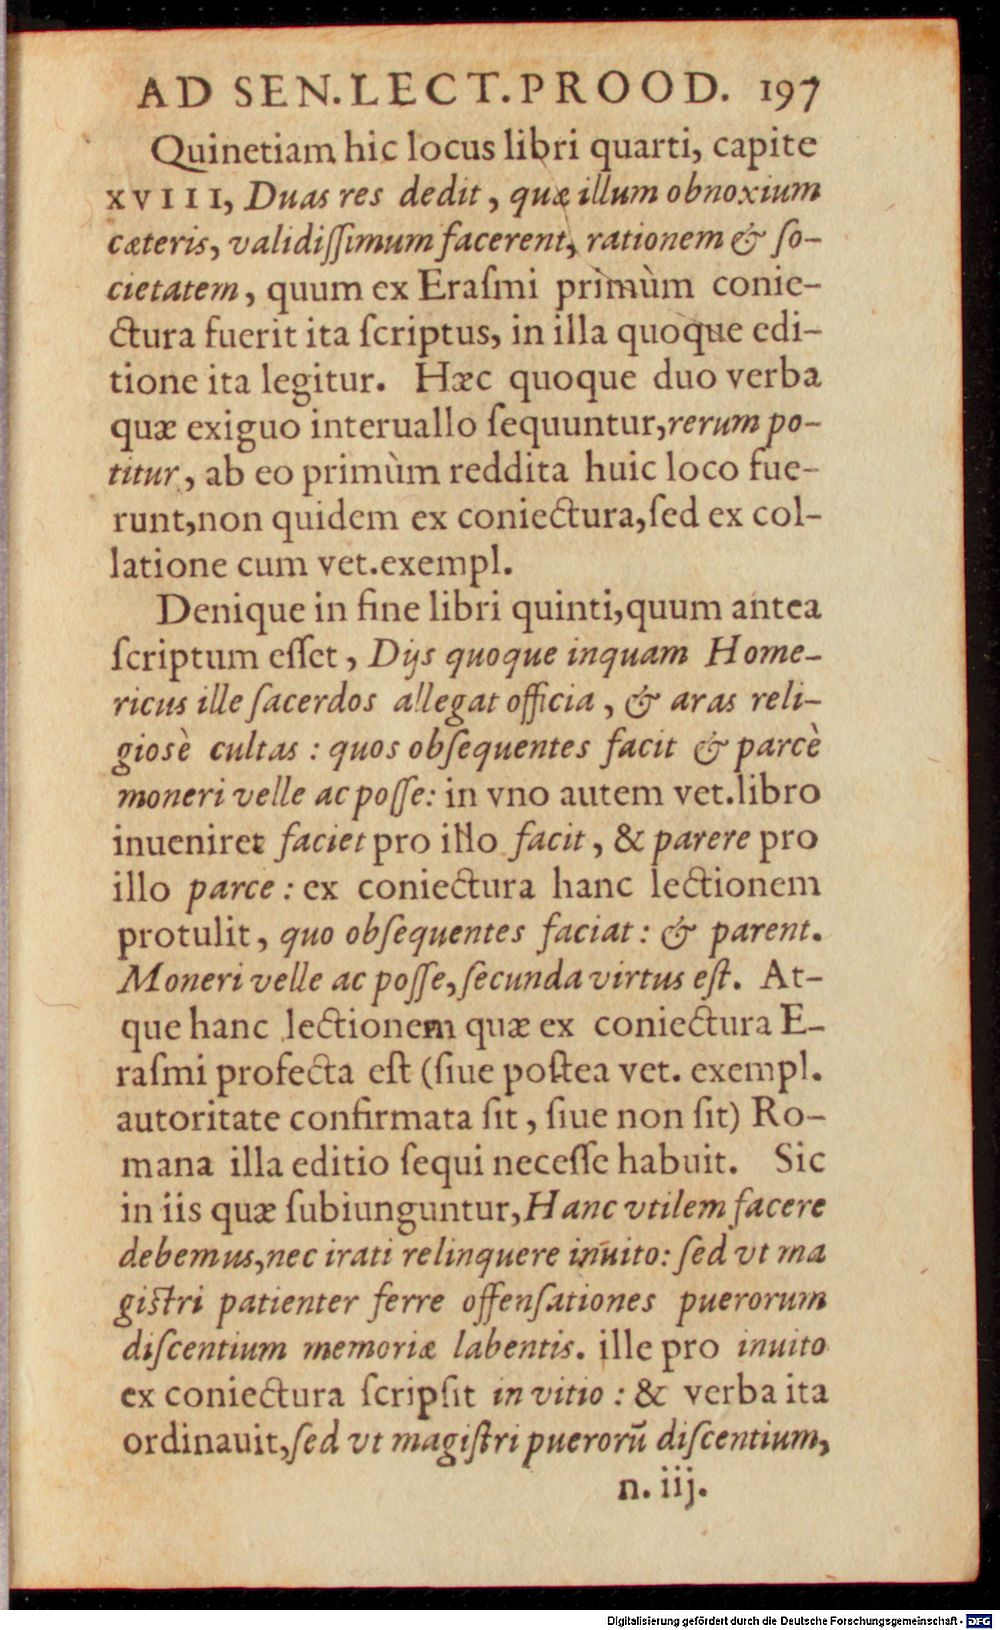 AD SEN.LECT.PROOD. 197
Quinetiam hic locus libri quarti, capite
XVIII, Duas res dedit, quæ illum obnoxium
cæteris, validiſſimum facerent, rationem & ſo-
cietatem, quum ex Eraſmi primùm conie-
ctura fuerit ita ſcriptus, in illa quoque edi-
tione ita legitur. Hæc quoque duo verba
quæ exiguo interuallo ſequuntur, rerum po-
titur, ab eo primùm reddita huic loco fue-
runt, non quidem ex coniectura, ſed ex col-
latione cum vet.exempl.
Denique in fine libri quinti, quum antea
ſcriptum eſſet, Dijs quoque inquam Home-
ricus ille ſacerdos allegat officia, & aras reli-
gioſè cultas: quos obſequentes facit & parcè
moneri velle ac poſſe: in vno autem vet.libro
inueniret faciet pro illo facit, & parere pro
illo parce: ex coniectura hanc lectionem
protulit, quo obſequentes faciat: & parent.
Moneri velle ac poſſe, ſecunda virtus eſt. At-
que hanc lectionem quæ ex coniectura E-
raſmi profecta eſt (ſiue poſtea vet. exempl.
autoritate confirmata ſit, ſiue non ſit) Ro-
mana illa editio ſequi neceſſe habuit. Sic
in iis quæ ſubiunguntur, Hanc vtilem facere
debemus, nec irati relinquere inuito: ſed vt ma
giſtri patienter ferre offenſationes puerorum
diſcentium memoriæ labentis. ille pro inuito
ex coniectura ſcripſit in vitio: & verba ita
ordinauit, ſed vt magiſtri puerorū diſcentium,
n. iij.
Digitalisierung gefördert durch die Deutsche Forschungsgemeinschaft - DFG